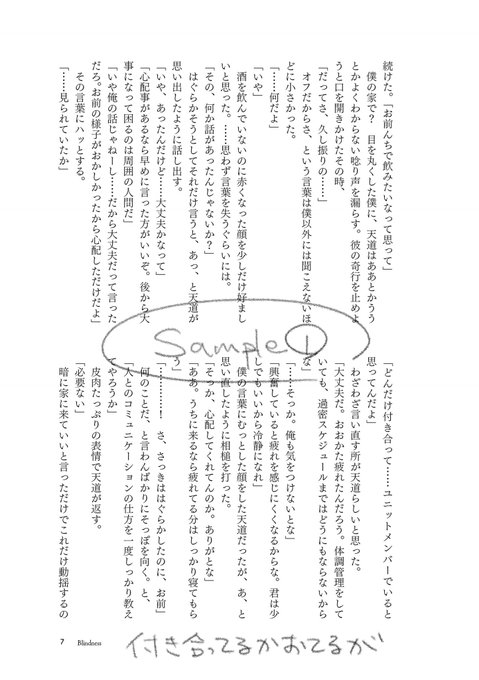 続けた。「お前んちで飲みたいなって思って」
　僕の家で？　目を丸くした僕に、天道はああとかうう
とかよくわからない唸り声を漏らす。彼の奇行を止めよ
うと口を開きかけたその時、
「だってさ、久し振りの……」
　オフだからさ、という言葉は僕以外には聞こえないほ
どに小さかった。
「……何だよ」
「いや」
　酒を飲んでいないのに赤くなった顔を少しだけ好まし
いと思った。……思わず言葉を失うぐらいには。
「その、何か話があったんじゃないか？」
　はぐらかそうとしてそれだけ言うと、あっ、と天道が
思い出したように話し出す。
「いや、あったんだけど……大丈夫かなって」
「心配事があるなら早めに言った方がいいぞ。後から大
事になって困るのは周囲の人間だ」
「いや俺の話じゃねーし……だから大丈夫だって言った
だろ。お前の様子がおかしかったから心配しただけだよ」
　その言葉にハッとする。
「……見られていたか」
「どんだけ付き合って……ユニットメンバーでいると
思ってんだよ」
　わざわざ言い直す所が天道らしいと思った。
「大丈夫だ。おおかた疲れたんだろう。体調管理をして
いても、過密スケジュールまではどうにもならないから
な」
「……そっか。俺も気をつけないとな」
「興奮していると疲れを感じにくくなるからな。君は少
しでもいいから冷静になれ」
　僕の言葉にむっとした顔をした天道だったが、あ、と
思い直したように相槌を打った。
「そっか、心配してくれてんのか。ありがとな」
「ああ。うちに来るなら疲れてる分はしっかり寝てもら
う」
「…………！　さ、さっきははぐらかしたのに、お前」
　何のことだ、と言わんばかりにそっぽを向く。と、
「人とのコミュニケーションの仕方を一度しっかり教え
てやろうか」
　皮肉たっぷりの表情で天道が返す。
「必要ない」
　暗に家に来ていいと言っただけでこれだけ動揺するの
Sample①
7　Blindness
付き合ってるかおてるが